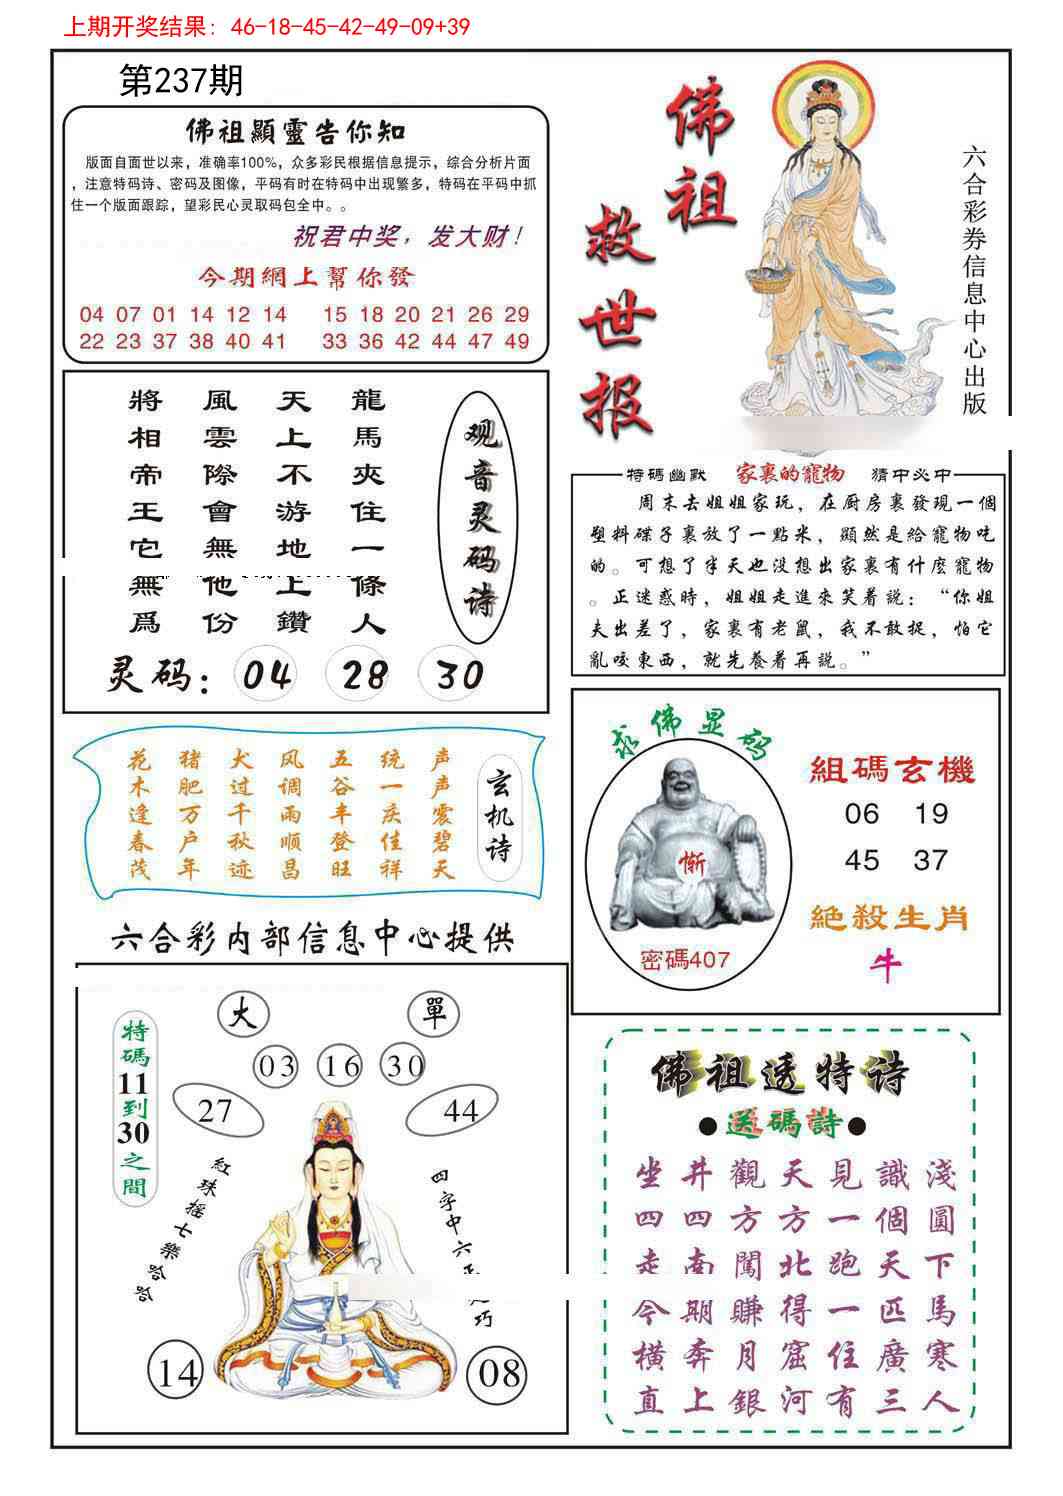 上期开奖结果: 46-18-45-42-49-09+39
第237期
佛祖顯靈告你知
版面自面世以来，准确率100%，众多彩民根据信息提示，综合分析片面
，注意特码诗、密码及图像，平码有时在特码中出现繁多，特码在平码中抓
住一个版面跟踪，望彩民心灵取码包全中。。
祝君中奖，发大财！
今期網上幫你發
04 07 01 14 12 14 15 18 20 21 26 29
22 23 37 38 40 41 33 36 42 44 47 49
佛祖
救世报
六合彩券信息中心出版
將風天龍
相雲上馬
帝際不夾
王會游住
它無地一
無他上條
爲份鑽人
观音灵码诗
灵码：04 28 30
特碼幽默 家裏的寵物 猜中必中
周末去姐姐家玩，在厨房裏發現一個
塑料碟子裏放了一點米，顯然是給寵物吃
的。可想了半天也没想出家裏有什麽寵物
。正迷惑時，姐姐走進來笑着説：“你姐
夫出差了，家裏有老鼠，我不敢捉，怕它
亂咬東西，就先養着再説。”
花猪犬风五统声
木肥过调谷一声
逢万千雨丰庆震
春户秋顺登佳碧
茂年迹昌旺祥天
玄机诗
求佛显码
惭
密碼407
組碼玄機
06 19
45 37
絕殺生肖
牛
六合彩内部信息中心提供
特碼11到30之間
大 單
03 16 30
27 44
紅珠摇七樂哈哈
四字中六
巧
14 08
佛祖透特诗
●送碼詩●
坐井觀天見識淺
四四方方一個圓
走南闖北跑天下
今期賺得一匹馬
横奔月窟住廣寒
直上銀河有三人